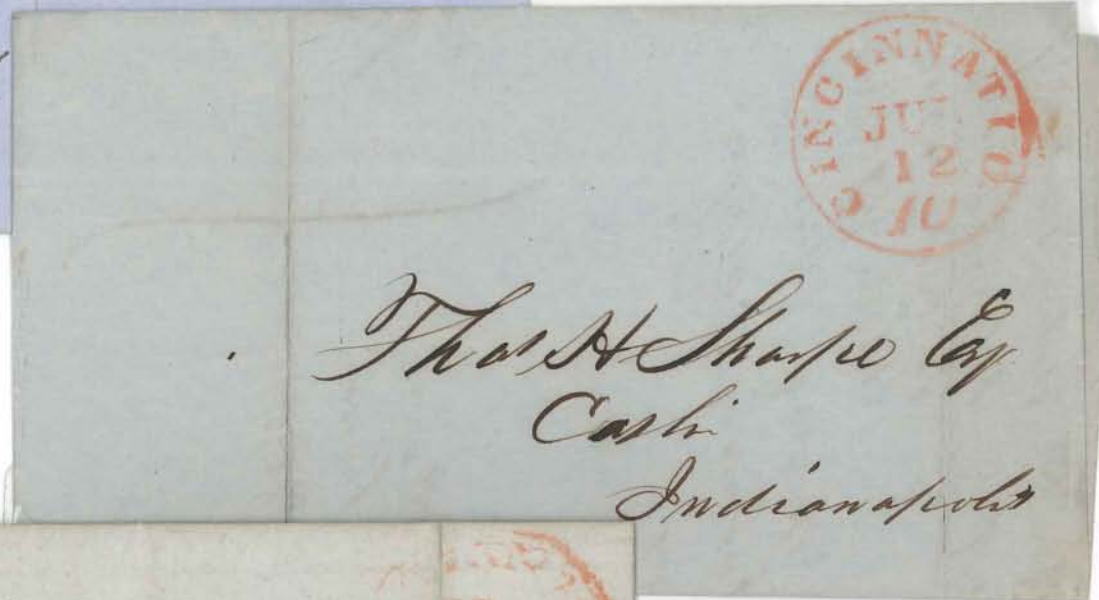 CINCINNATI O
JUL
12
10
Thos H Sharpe Esq
Cashr
Indianapolis